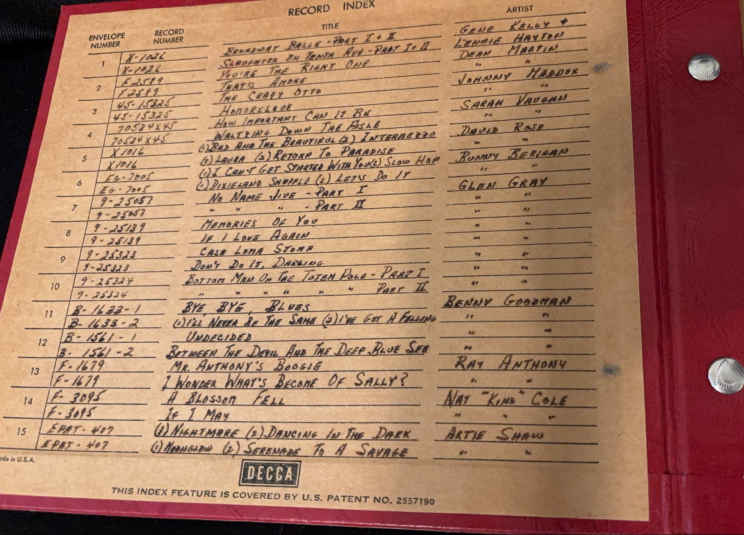 RECORD INDEX
ENVELOPE NUMBER RECORD NUMBER TITLE ARTIST
1 X-1026 BROADWAY BALLET - PART I & II GENE KELLY &
X-1026 SLAUGHTER ON TENTH AVE - PART I & II LENNIE HAYTON
2 F2589 YOU'RE THE RIGHT ONE DEAN MARTIN
F2589 THAT'S AMORE " "
3 45-15325 THE CRAZY OTTO JOHNNY MADDOX
45-15325 HUMORESQUE " "
4 70534X45 HOW IMPORTANT CAN IT BE SARAH VAUGHAN
70534X45 WALTZING DOWN THE AISLE " "
5 X1016 (1) BAD AND THE BEAUTIFUL (2) INTERMEZZO DAVID ROSE
X1016 (1) LAURA (2) RETURN TO PARADISE " "
6 EG-7005 (1) I CAN'T GET STARTED WITH YOU (2) SLOW HOP BUNNY BERIGAN
EG-7005 (1) DIXIELAND SHUFFLE (2) LET'S DO IT " "
7 9-25057 NO NAME JIVE - PART I GLEN GRAY
9-25057 " " " - PART II " "
8 9-25139 MEMORIES OF YOU " "
9-25139 IF I LOVE AGAIN " "
9 9-25323 CASA LOMA STOMP " "
9-25323 DON'T DO IT, DARLING " "
10 9-25324 BOTTOM MAN ON THE TOTEM POLE - PART I " "
9-25324 " " " " " " PART II " "
11 B-1633-1 BYE BYE, BLUES BENNY GOODMAN
B-1633-2 (1) I'LL NEVER BE THE SAME (2) I'VE GOT A FEELING " "
12 B-1561-1 UNDECIDED " "
B-1561-2 BETWEEN THE DEVIL AND THE DEEP BLUE SEA " "
13 F-1679 MR. ANTHONY'S BOOGIE RAY ANTHONY
F-1679 I WONDER WHAT'S BECOME OF SALLY? " "
14 F-3095 A BLOSSOM FELL NAT "KING" COLE
F-3095 IF I MAY " " "
15 EPAT-407 (1) NIGHTMARE (2) DANCING IN THE DARK ARTIE SHAW
EPAT-407 (1) MOONGLOW (2) SERENADE TO A SAVAGE " "
in U.S.A.
DECCA
THIS INDEX FEATURE IS COVERED BY U.S. PATENT NO. 2557190